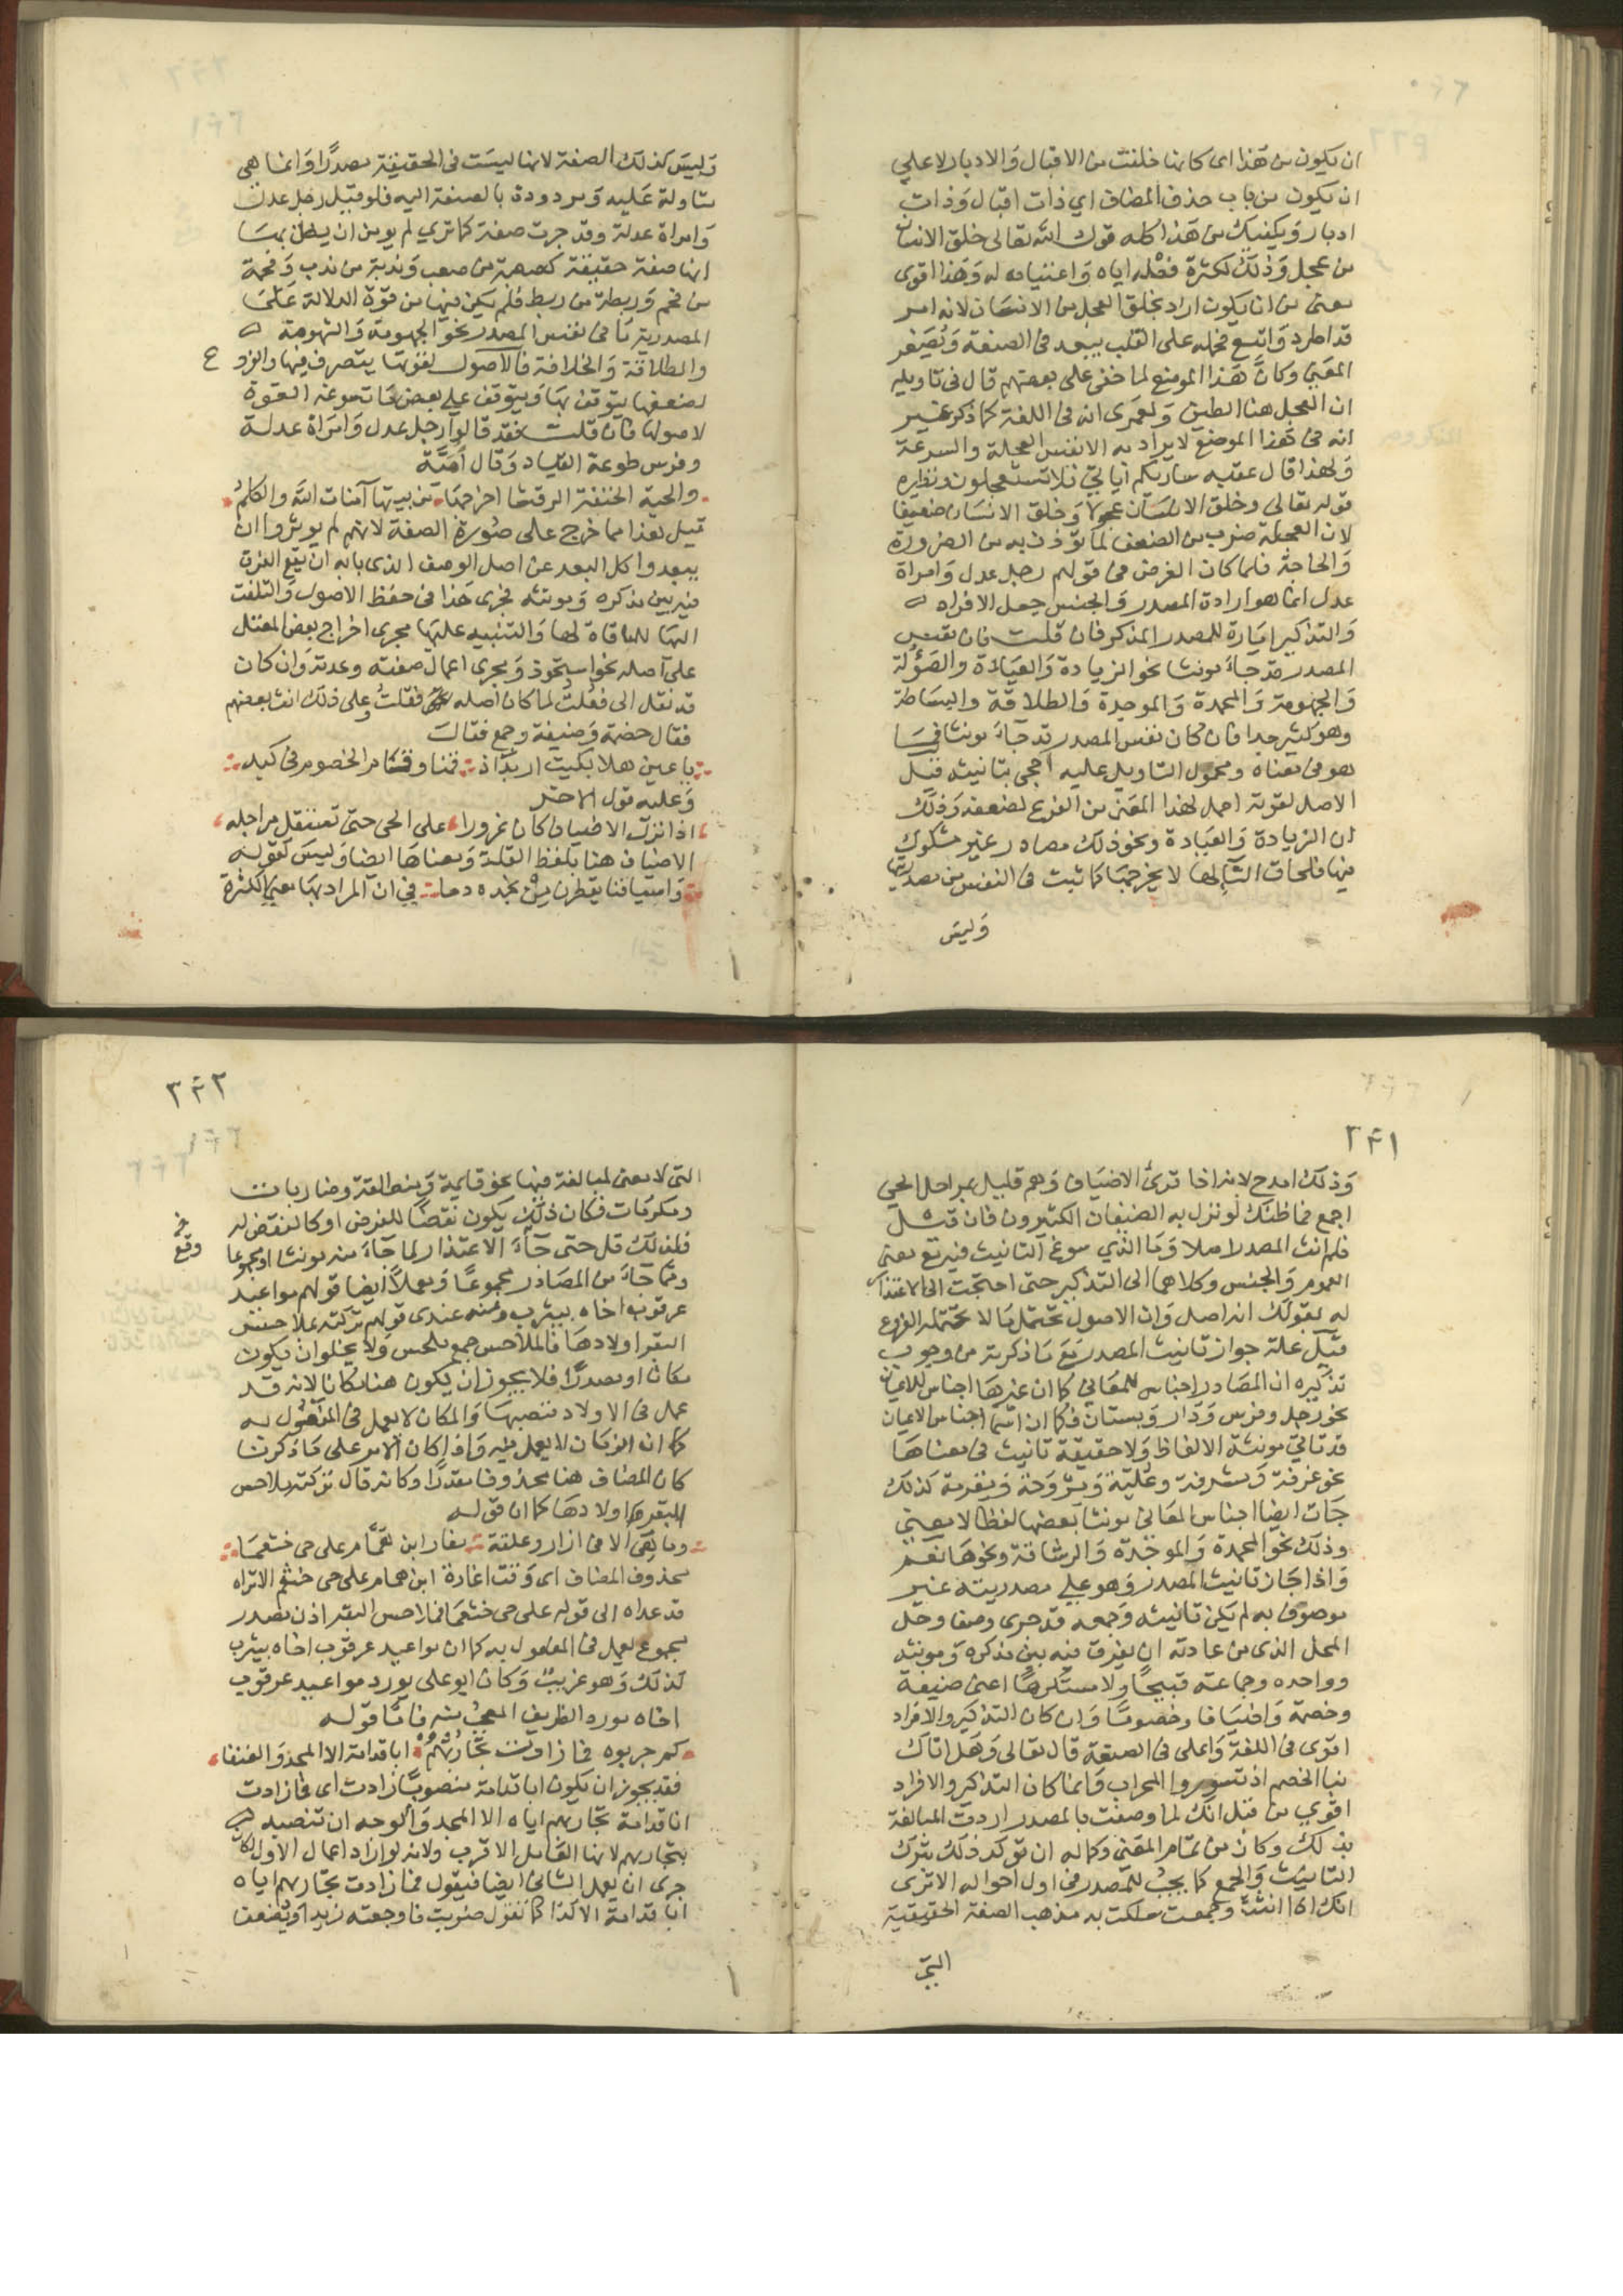 ان يكون من هذا اى كانها خلقت من الاقبال والادبار لا على
ان يكون من باب حذف المضاف اي ذات اقبال وذات
ادبار ويكفيك من هذا كله قول الله تعالى خلق الانسان
من عجل وذلك لكثرة فعله اياه واعتياده له وهذا اقوى
معنى من ان يكون اراد خلق العجل من الانسان لانه امر
قد اطرد واتسع فحمله على القلب يبعد فى الصنعة ويصغر
المعنى وكان هذا الموضع لما خفى على بعضهم قال فى تاويله
ان العجل هنا الطين ولعمرى انه فى اللغة كما ذكر غير
انه فى هذا الموضع لا يراد به الا نفس العجلة والسرعة
ولهذا قال عقيبه ساريكم آياتي فلا تستعجلون ونظيره
قوله تعالى وخلق الانسان عجولا وخلق الانسان ضعيفا
لان العجلة ضرب من الضعف لما تؤذن به من الضرورة
والحاجة فلما كان الغرض فى قولهم رجل عدل وامراة
عدل انما هو ارادة المصدر والجنس جعل الافراد
والتذكير امارة للمصدر المذكر فان قلت فان نفس
المصدر قد جاء مونثا نحو الزيادة والعبادة والضؤلة
والجهومة والمحمدة والموجدة والطلاقة والبساطة
وهو كثير جدا فان كان نفس المصدر قد جاء مونثا فما
هو فى معناه ومحمول التاويل عليه احجى بتانيثه قيل
الاصل لقوته احمل لهذا المعنى من الفرع لضعفه وذلك
ان الزيادة والعبادة ونحو ذلك مصادر غير مشكوك
فيها فلحاق التا لها لا يخرجها كما ثبت فى النفس من مصدريتها
وليس
وليس كذلك الصفة لانها ليست فى الحقيقة مصدرا وانما هى
متاولة عليه ومردودة بالصنعة اليه فلو قيل رجل عدل
وامراة عدلة وقد جرت صفة كما تري لم يومن ان يظن بها
انها صفة حقيقة كصعبة من صعب وندبة من ندب وفخمة
من فخم وربطة من ربط فلم يكن فيها من قوة الدلالة على
المصدرية ما فى نفس المصدر نحو الجهومة والشهومة
والطلاقة والخلافة فالاصول لقوتها يتصرف فيها والفروع
لضعفها يتوقف بها ويتوقف على بعض ما تسوغه القوة
لاصولها فان قلت فقد قالوا رجل عدل وامراة عدلة
وفرس طوعة القياد وقال امية
والحية الحتفة الرقشا اخرجها من بيتها آمنات الله والكلم
قيل هذا مما خرج على صورة الصفة لانهم لم يوثروا ان
يبعدوا كل البعد عن اصل الوصف الذى بابه ان يقع الفرق
فيه بين مذكره ومونثه فجرى هذا فى حفظ الاصول والتلفت
اليها للمباقاة لها والتنبيه عليها مجرى اخراج بعض المعتل
على اصله نحو استحوذ ومجرى اعمال صغته وعدته وان كان
قد نقل الى فعلت لما كان اصله فعلت وعلى ذلك انث بعضهم
فقال خصمة وضيفة وجمع فقال
يا عين هلا بكيت اربد اذ قمنا وقام الخصوم فى كبد
وعليه قول الاخر
اذا نزل الاضياف كان عزورا على الحى حتى تستقل مراجله
الاضياف هنا بلفظ القلة ومعناها ايضا وليس كقوله
واسيافنا يقطرن من نجده دما في ان المراد بها معنى الكثرة
٢٤١
وذلك امدح لانه اذا قرى الاضياف وهم قليل بمراجل الحي
اجمع فما ظنك لو نزل به الضيفان الكثيرون فان قيل
فلم انث المصدر اصلا وما الذي سوغ التانيث فيه مع معنى
العموم والجنس وكلاهما الى التذكير حتى احتجت الى الاعتذار
له بقولك انه اصل وان الاصول تحتمل ما لا تحتمله الفروع
قيل علة جواز تانيث المصدر مع ما ذكرته من وجوب
تذكيره ان المصادر اجناس للمعاني كما ان غيرها اجناس للاعيان
نحو رجل وفرس ودار وبستان فكما ان اسما اجناس الاعيان
قد تاتي مونثة الالفاظ ولا حقيقة تانيث فى معناها
نحو غرفة ومشرفة وعلية ومروحة ومقرمة كذلك
جات ايضا اجناس المعانى مونثا بعضها لفظا لا معنى
وذلك نحو المحمدة والموجدة والرشاقة ونحوها نعم
واذا جاز تانيث المصدر وهو على مصدريته غير
موصوف به لم يكن تانيثه وجمعه قد جرى وصفا وحل
المحل الذى من عادته ان يفرق فيه بين مذكره ومونثه
وواحده وجماعته قبيحا ولا مستكرها اعنى ضيفة
وخصمة واضيافا وخصوما وان كان التذكير والافراد
اقوى فى اللغة واعلى فى الصنعة قال تعالى وهل اتاك
نبا الخصم اذ تسوروا المحراب وانما كان التذكير والافراد
اقوى من قبل انك لما وصفت بالمصدر اردت المبالغة
بذلك وكان من تمام المعنى وكماله ان توكد ذلك بترك
التانيث والجمع كما يجب للمصدر فى اول احواله الا ترى
انك اذا انثت وجمعت سلكت به مذهب الصفة الحقيقية
التى
٣٤٢
التى لا معنى لمبالغة فيها نحو قايمة ومنطلقة وضاربات
ومكرمات فكان ذلك يكون نقضا للغرض او كالنقض له
فلذلك قل حتى جاء الاعتذار لما جاء منه مونثا او مجموعا
وقع
ومما جاء من المصادر مجموعا ومعملا ايضا قولهم مواعيد
عرقوب اخاه بيثرب ومنه عندى قولهم تركته بملاحس
البقر اولادها فالملاحس جمع ملحس ولا يخلو ان يكون
مكانا او مصدرا فلا يجوز ان يكون هنا مكانا لانه قد
عمل فى الاولاد فنصبها والمكان لا يعمل فى المفعول به
كما ان الزمان لا يعمل فيه واذا كان الامر على ما ذكرنا
كان المضاف هنا محذوفا مقدرا وكانه قال تركته بملاحس
البقر اولادها كما ان قوله
وما هى الا فى ازار وعلقة مغار ابن همام على حى خثعما
محذوف المضاف اى وقت اغارة ابن همام على حى خثعم الا تراه
قد عداه الى قوله على حى خثعما فملاحس البقر اذن مصدر
مجموع يعمل فى المفعول به كما ان مواعيد عرقوب اخاه بيثرب
كذلك وهو غريب وكان ابو على يورد مواعيد عرقوب
اخاه مورد الطريف المعجب منه فاما قوله
كم جربوه فما زادت تجاربهم ابا قدامة الا المجد والفنعا
فقد يجوز ان يكون ابا قدامة منصوبا زادت اى فما زادت
ابا قدامة تجاربهم اياه الا المجد والوجه ان تنصبه
بتجاربهم لانها العامل الاقرب ولانه لو اراد اعمال الاول لكان
حرى ان يعمل الثانى ايضا فيقول فما زادت تجاربهم اياه
ابا قدامة الا كذا كما تقول ضربت فاوجعته زيدا ويضعف